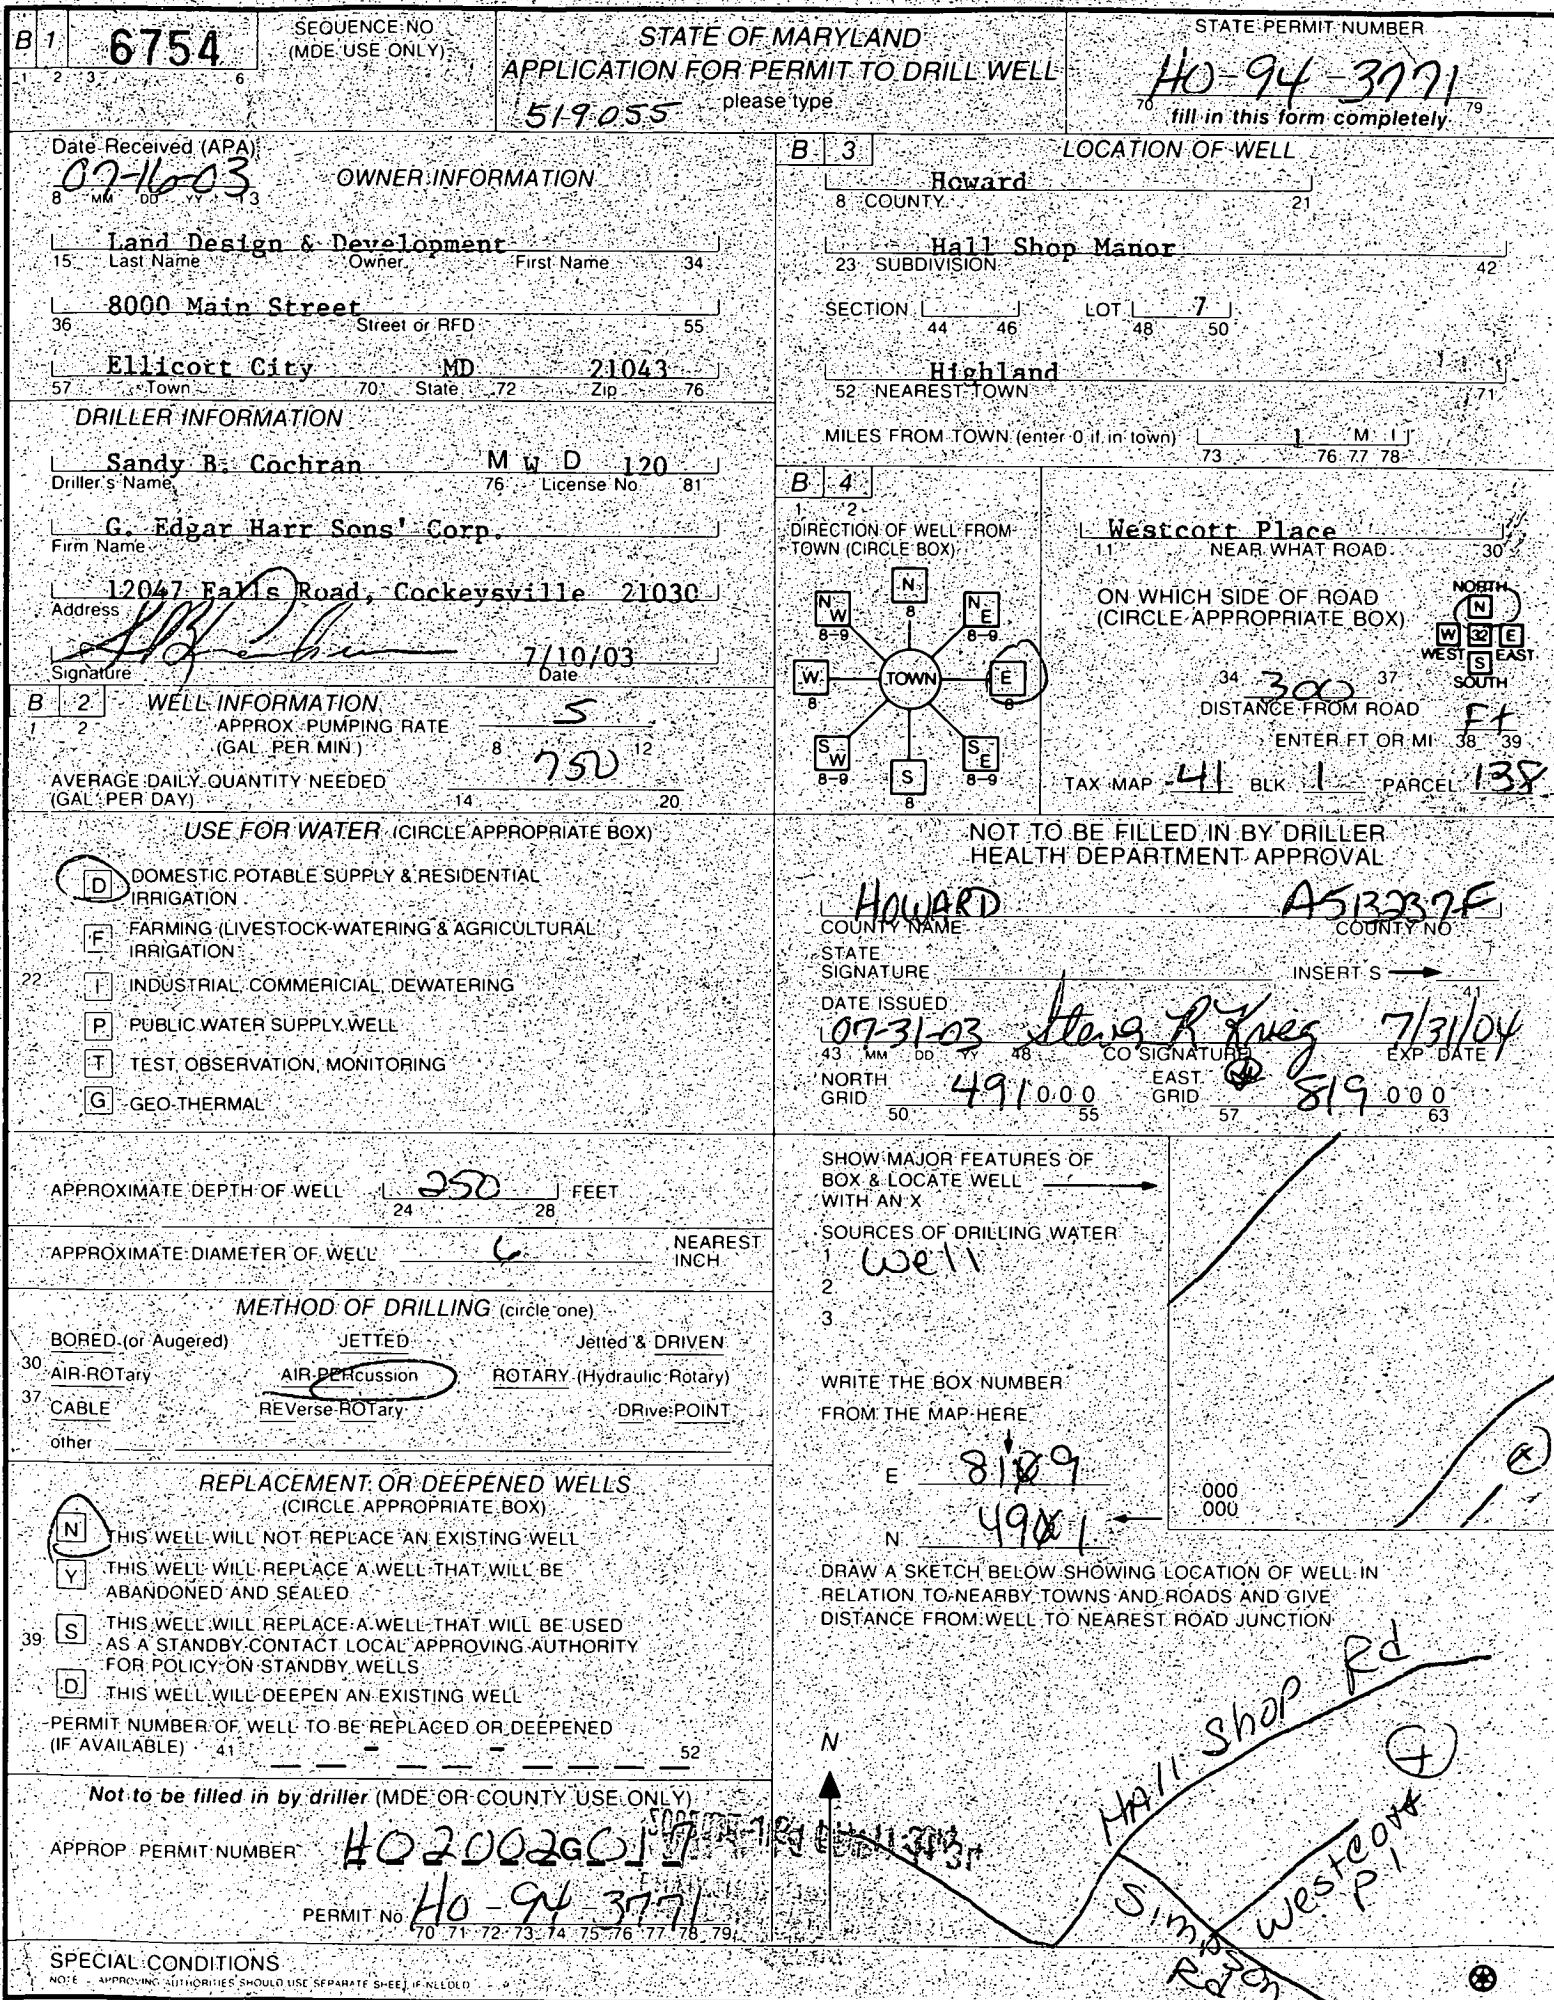 B 1
6754
1 2 3 6
SEQUENCE NO
(MDE USE ONLY)
STATE OF MARYLAND
APPLICATION FOR PERMIT TO DRILL WELL
please type
519055
STATE PERMIT NUMBER
HO-94-3771
70 79
fill in this form completely
Date Received (APA)
07-16-03
8 MM DD YY 13
OWNER INFORMATION
Land Design & Development
15 Last Name Owner First Name 34
8000 Main Street
36 Street or RFD 55
Ellicott City MD 21043
57 Town 70 State 72 Zip 76
DRILLER INFORMATION
Sandy B. Cochran M W D 120
Driller's Name 76 License No 81
G. Edgar Harr Sons' Corp.
Firm Name
12047 Falls Road, Cockeysville 21030
Address
7/10/03
Signature Date
B 2 WELL INFORMATION
1 2
APPROX. PUMPING RATE
(GAL. PER MIN.) 5
8 12
AVERAGE DAILY QUANTITY NEEDED
(GAL. PER DAY) 750
14 20
USE FOR WATER (CIRCLE APPROPRIATE BOX)
D DOMESTIC POTABLE SUPPLY & RESIDENTIAL
IRRIGATION
F FARMING (LIVESTOCK WATERING & AGRICULTURAL
IRRIGATION
22 I INDUSTRIAL, COMMERICIAL, DEWATERING
P PUBLIC WATER SUPPLY WELL
T TEST, OBSERVATION, MONITORING
G GEO-THERMAL
APPROXIMATE DEPTH OF WELL 250 FEET
24 28
APPROXIMATE DIAMETER OF WELL 6 NEAREST
INCH
METHOD OF DRILLING (circle one)
BORED (or Augered) JETTED Jetted & DRIVEN
30 AIR-ROTary AIR-PERcussion ROTARY (Hydraulic Rotary)
37 CABLE REVerse-ROTary DRive-POINT
other
REPLACEMENT OR DEEPENED WELLS
(CIRCLE APPROPRIATE BOX)
N THIS WELL WILL NOT REPLACE AN EXISTING WELL
Y THIS WELL WILL REPLACE A WELL THAT WILL BE
ABANDONED AND SEALED
39 S THIS WELL WILL REPLACE A WELL THAT WILL BE USED
AS A STANDBY-CONTACT LOCAL APPROVING AUTHORITY
FOR POLICY ON STANDBY WELLS
D THIS WELL WILL DEEPEN AN EXISTING WELL
PERMIT NUMBER OF WELL TO BE REPLACED OR DEEPENED
(IF AVAILABLE) 41 - - 52
Not to be filled in by driller (MDE OR COUNTY USE ONLY)
APPROP. PERMIT NUMBER HO2002G017
PERMIT No. HO-94-3771
70 71 72 73 74 75 76 77 78 79
SPECIAL CONDITIONS
NOTE - APPROVING AUTHORITIES SHOULD USE SEPARATE SHEET IF NEEDED
B 3 LOCATION OF WELL
Howard
8 COUNTY 21
Hall Shop Manor
23 SUBDIVISION 42
SECTION LOT 7
44 46 48 50
Highland
52 NEAREST TOWN 71
MILES FROM TOWN (enter 0 if in town) 1 M I
73 76 77 78
B 4
1 2
DIRECTION OF WELL FROM
TOWN (CIRCLE BOX)
N
8
NW
8-9
NE
8-9
W
8
TOWN
E
8
SW
8-9
S
8
SE
8-9
Westcott Place
11 NEAR WHAT ROAD 30
ON WHICH SIDE OF ROAD
(CIRCLE APPROPRIATE BOX)
NORTH
N
W 32 E
WEST EAST
S
SOUTH
34 300 37
DISTANCE FROM ROAD
ENTER FT OR MI Ft
38 39
TAX MAP 41 BLK 1 PARCEL 138
NOT TO BE FILLED IN BY DRILLER
HEALTH DEPARTMENT APPROVAL
HOWARD A513237F
COUNTY NAME COUNTY NO
STATE
SIGNATURE INSERT S
41
DATE ISSUED
07-31-03 7/31/04
43 MM DD YY 48 CO SIGNATURE EXP DATE
NORTH
GRID 491000
50 55
EAST
GRID 819000
57 63
SHOW MAJOR FEATURES OF
BOX & LOCATE WELL
WITH AN X
SOURCES OF DRILLING WATER
1 well
2
3
WRITE THE BOX NUMBER
FROM THE MAP HERE
E 8109
N 4901
000
000
DRAW A SKETCH BELOW SHOWING LOCATION OF WELL IN
RELATION TO NEARBY TOWNS AND ROADS AND GIVE
DISTANCE FROM WELL TO NEAREST ROAD JUNCTION
N
HAll Shop Rd
Westcott
Pl
Simpson
Rd